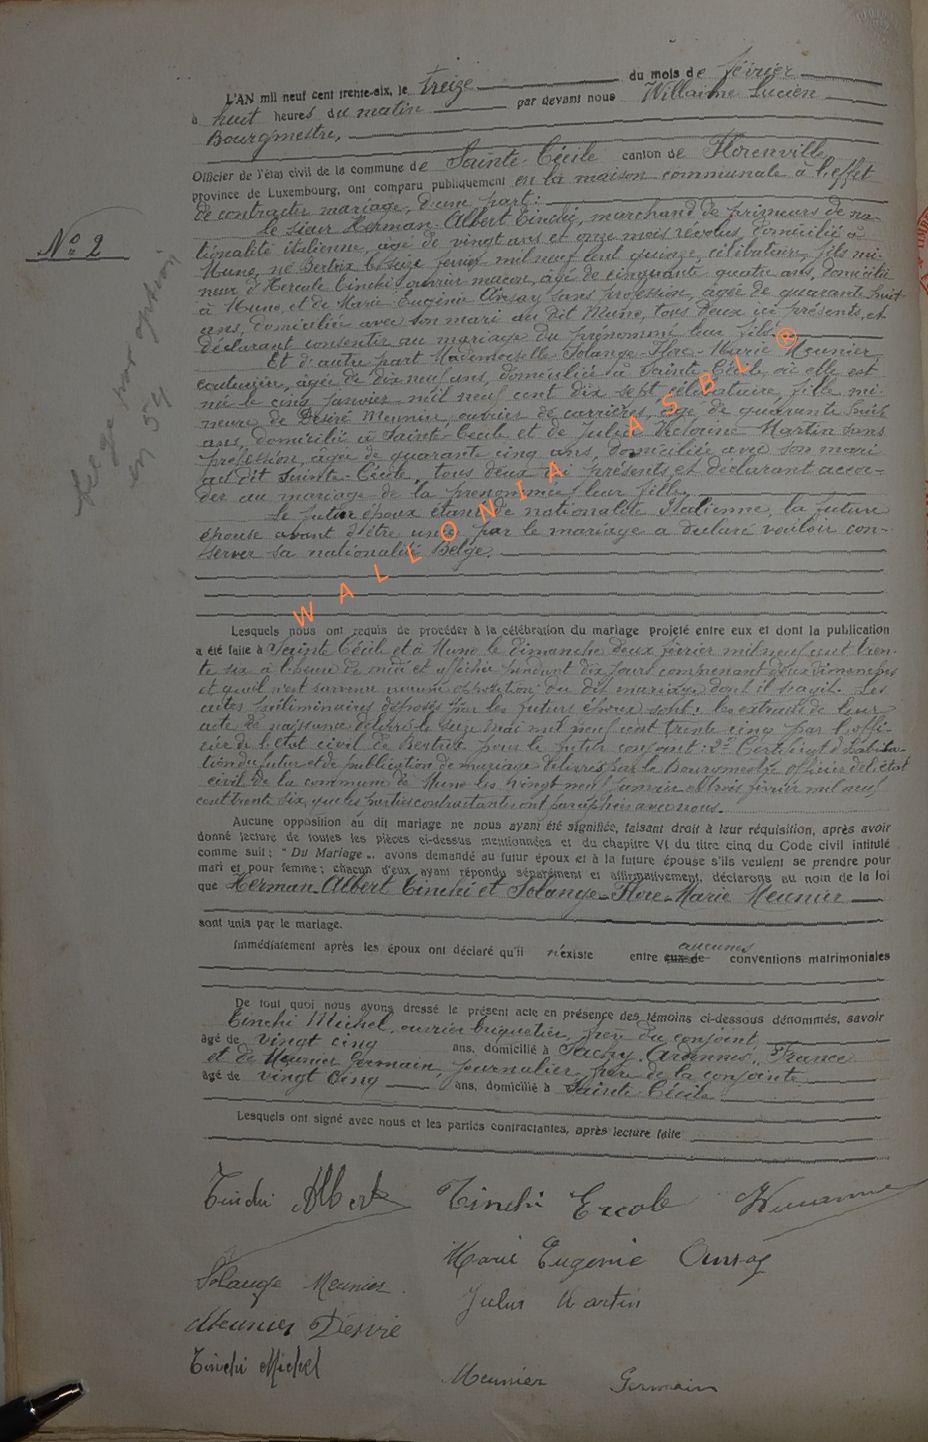 L'AN mil neuf cent trente-six, le treize du mois de février
à huit heures du matin par devant nous Willaime Lucien
Bourgmestre,
Officier de l'état civil de la commune de Sainte-Cécile canton de Florenville
province de Luxembourg, ont comparu publiquement en la maison communale à l'effet
de contracter mariage, d'une part :
Le sieur Herman-Albert Tinchi, marchand de primeurs de na-
tionalité italienne, âgé de vingt ans et onze mois révolus, domicilié à
Muno, né Bertrix le seize février mil neuf cent quinze, célibataire, fils mi-
neur d'Hercule Tinchi ouvrier maçon, âgé de cinquante quatre ans, domicilié
à Muno, et de Marie Eugénie sans profession, âgée de quarante huit
ans, domiciliée avec son mari au dit Muno, tous deux ici présents, et
déclarant consentir au mariage du prénommé leur fils.
Et d'autre part Mademoiselle Solange-Flore-Marie Meunier
couturière, âgée de dix neuf ans, domiciliée à Sainte Cécile où elle est
née le cinq janvier mil neuf cent dix sept, célibataire, fille mi-
neure de Désiré Meunier, ouvrier de carrières, âgé de quarante huit
ans, domicilié à Sainte-Cécile et de Julia Victorine Martin sans
profession, âgée de quarante cinq ans, domiciliée avec son mari
au dit Sainte-Cécile, tous deux ici présents et déclarant accor-
der au mariage de la prénommée leur fille,
Le futur époux étant de nationalité Italienne, la future
épouse avant d'être unis par le mariage a déclaré vouloir con-
server sa nationalité Belge.
Nº 2
Belge par option
en
WALLONIA ASBL ®
Lesquels nous ont requis de procéder à la célébration du mariage projeté entre eux et dont la publication
a été faite à Sainte Cécile et à Muno le dimanche deux février mil neuf cent tren-
te six à l'heure de midi et affichée pendant dix jours comprenant deux dimanches
et qu'il n'est survenu aucune opposition au dit mariage dont il s'agit. Les
actes préliminaires déposés par les futurs époux sont : les extraits de leur
acte de naissance délivré le seize mai mil neuf cent trente cinq par l'offi-
cier de l'état civil de Bertrix pour le futur conjoint : 2º Certificat d'habita-
tion du futur et de publication de mariage délivrés par le Bourgmestre officier de l'état
civil de la commune de Muno les vingt neuf janvier et trois février mil neuf
cent trente six, que les parties contractantes ont paraphées avec nous.
Aucune opposition au dit mariage ne nous ayant été signifiée, faisant droit à leur réquisition, après avoir
donné lecture de toutes les pièces ci-dessus mentionnées et du chapitre VI du titre cinq du Code civil intitulé
comme suit : "Du Mariage„ avons demandé au futur époux et à la future épouse s'ils veulent se prendre pour
mari et pour femme ; chacun d'eux ayant répondu séparément et affirmativement, déclarons au nom de la loi
que Herman-Albert Tinchi et Solange-Flore-Marie Meunier
sont unis par le mariage.
Immédiatement après les époux ont déclaré qu'il n'existe entre eux de aucunes conventions matrimoniales
De tout quoi nous avons dressé le présent acte en présence des témoins ci-dessous dénommés, savoir
Tinchi Michel, ouvrier briquetier, frère du conjoint
âgé de vingt cinq ans, domicilié à Sachy, Ardennes, France
et de Meunier Germain, journalier, frère de la conjointe
âgé de vingt cinq ans, domicilié à Sainte-Cécile
Lesquels ont signé avec nous et les parties contractantes, après lecture faite
Tinchi Albert Tinchi Ercole
Marie Eugénie
Solange Meunier
Julia Martin
Meunier Désiré
Tinchi Michel
Meunier Germain